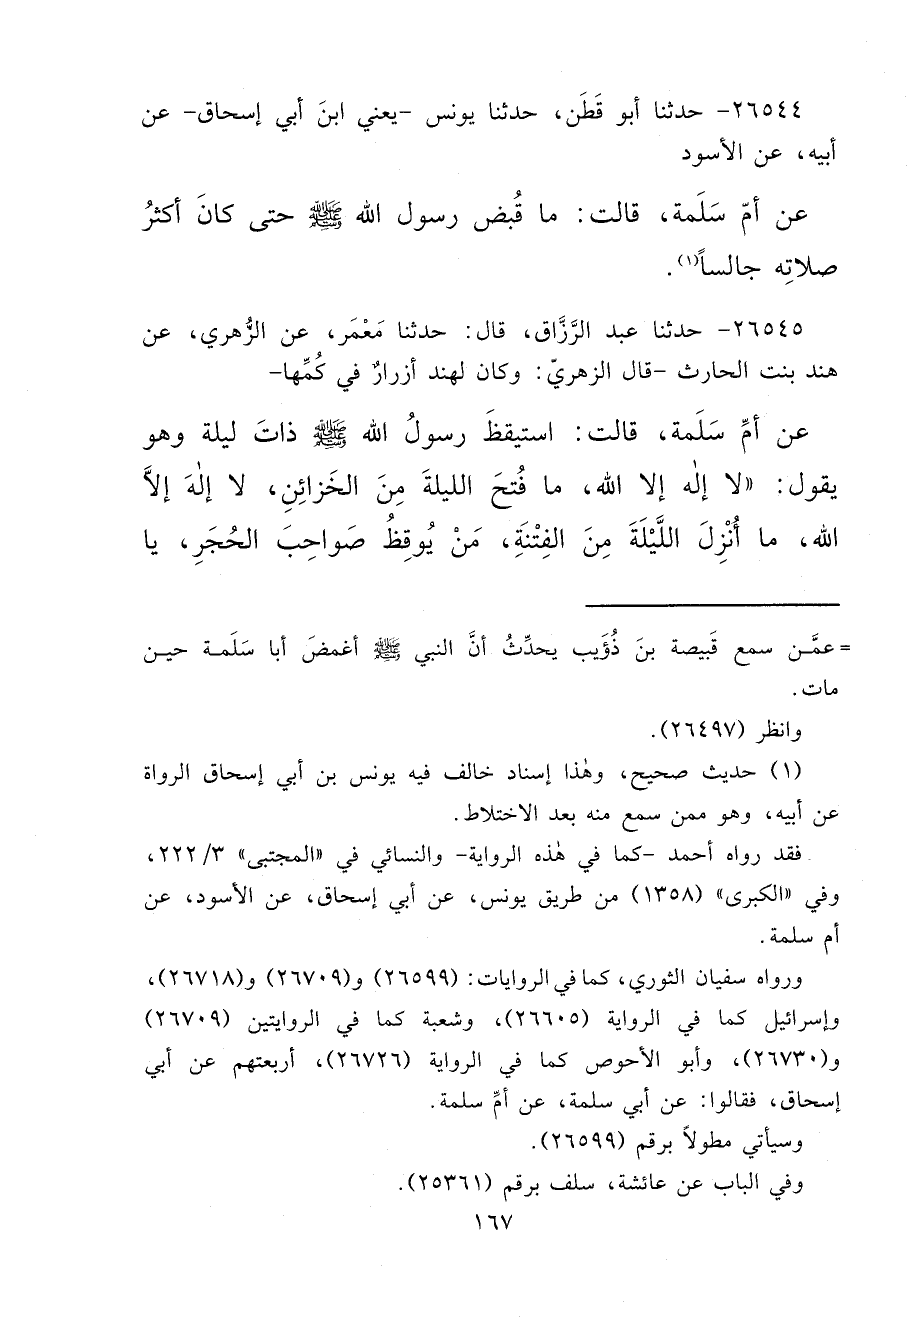 ٢٦٥٤٤- حدثنا أبو قَطَن، حدثنا يونس -يعني ابنَ أبي إسحاق- عن
أبيه، عن الأسود
عن أمّ سَلَمة، قالت: ما قُبض رسول الله ﷺ حتى كانَ أكثرُ
صلاتِه جالساً(١).
٢٦٥٤٥- حدثنا عبد الرَّزَّاق، قال: حدثنا مَعْمَر، عن الزُّهري، عن
هند بنت الحارث -قال الزهريّ: وكان لهند أزرارٌ في كُمِّها-
عن أمِّ سَلَمة، قالت: استيقظَ رسولُ الله ﷺ ذاتَ ليلة وهو
يقول: «لا إلٰه إلا الله، ما فُتحَ الليلةَ مِنَ الخَزائِنِ، لا إلٰهَ إلاَّ
الله، ما أُنْزِلَ اللَّيْلَةَ مِنَ الفِتْنَةِ، مَنْ يُوقِظُ صَواحِبَ الحُجَرِ، يا
= عمَّـن سمع قَبيصة بنَ ذُؤَيب يحدِّثُ أنَّ النبي ﷺ أغمضَ أبا سَلَمـة حيـن
مات.
وانظر (٢٦٤٩٧).
(١) حديث صحيح، وهٰذا إسناد خالف فيه يونس بن أبي إسحاق الرواة
عن أبيه، وهو ممن سمع منه بعد الاختلاط.
فقد رواه أحمد -كما في هٰذه الرواية- والنسائي في «المجتبى» ٢٢٢/٣،
وفي «الكبرى» (١٣٥٨) من طريق يونس، عن أبي إسحاق، عن الأسود، عن
أم سلمة.
ورواه سفيان الثوري، كما في الروايات: (٢٦٥٩٩) و(٢٦٧٠٩) و(٢٦٧١٨)،
وإسرائيل كما في الرواية (٢٦٦٠٥)، وشعبة كما في الروايتين (٢٦٧٠٩)
و(٢٦٧٣٠)، وأبو الأحوص كما في الرواية (٢٦٧٢٦)، أربعتهم عن أبي
إسحاق، فقالوا: عن أبي سلمة، عن أمِّ سلمة.
وسيأتي مطولاً برقم (٢٦٥٩٩).
وفي الباب عن عائشة، سلف برقم (٢٥٣٦١).
١٦٧